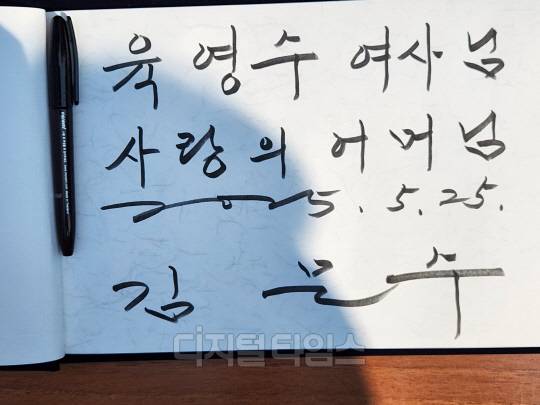 육 영수 여사님
사랑의 어머님
2025. 5. 25.
김 문 수
디지털타임스